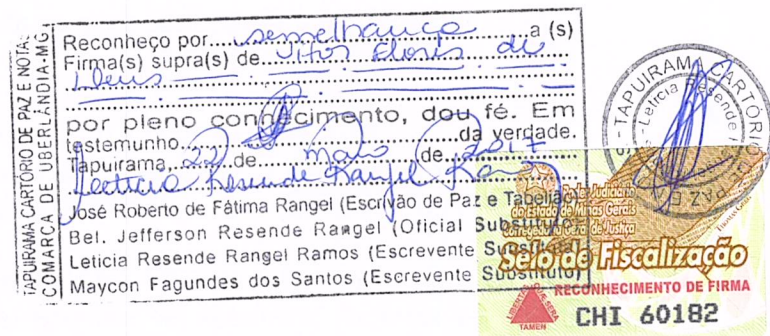 TAPUIRAMA CARTÓRIO DE PAZ E NOTAS
COMARCA DE UBERLÂNDIA-MG.
Reconheço por semelhança a (s)
Firma(s) supra(s) de Vitor de
Deus
por pleno conhecimento, dou fé. Em
testemunho da verdade.
Tapuirama, 22 de maio de 2017
Leticia Resende Rangel Ramos
José Roberto de Fátima Rangel (Escrivão de Paz e Tabelião)
Bel. Jefferson Resende Rangel (Oficial Substituto)
Leticia Resende Rangel Ramos (Escrevente Substituta)
Maycon Fagundes dos Santos (Escrevente Substituto)
TAPUIRAMA CARTÓRIO
Leticia Resende
PAZ E
Poder Judiciário
do Estado de Minas Gerais
Corregedoria Geral de Justiça
Selo de Fiscalização
RECONHECIMENTO DE FIRMA
TAMEN
CHI 60182